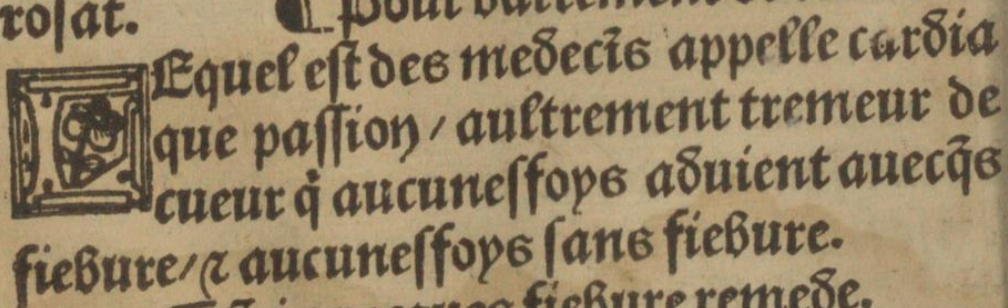 rosat. ¶ Pour
LEquel est des medecīs appelle cardia
que passion / aultrement tremeur de
cueur q̇ aucunesfoys aduient auecq̄s
fiebure / ⁊ aucunesfoys sans fiebure.
fiebure remede.